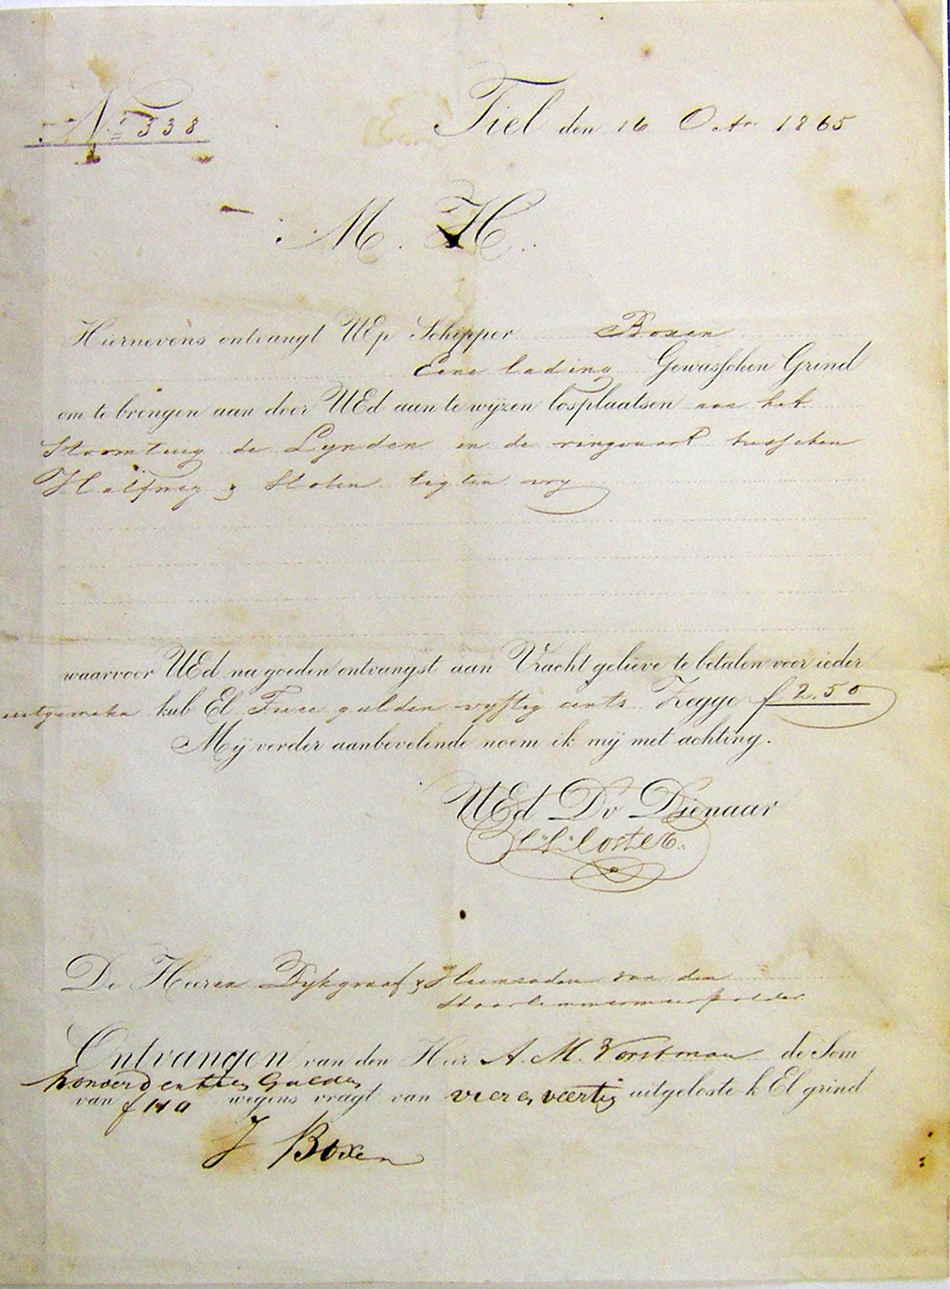 No 338
Tiel den 16 Octr 1865
M. H.
Hiernevens ontvangt UEp Schipper Boxen
Eene lading Gewasschen Grind
om te brengen aan door UEd aan te wijzen losplaatsen aan het
Stoomtuig de Lynden in de ringvaart tusschen
Halfweg & Sloten ligten vry
waarvoor UEd na goeden ontvangst aan Vracht gelieve te betalen voor ieder
kub El Twee gulden vyftig cents Zegge f 2.50
Mij verder aanbevelende noem ik mij met achting.
UEd Dv Dienaar
De Heeren Dykgraaf & Heemraden van den
Haarlemmermeerpolder
Ontvangen van den Heer A. M. Vorstman de Som
honderd en tien Gulden
van f 110 wegens vragt van vier en veertig uitgeloste k El grind
J Boxen